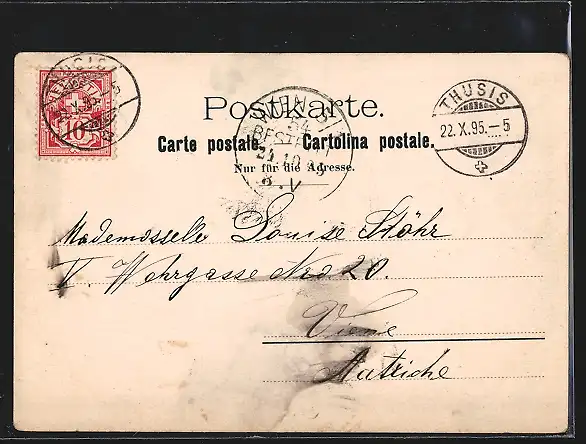 HELVETIA
10
Postkarte.
Carte postale. Cartolina postale.
Nur für die Adresse.
THUSIS
22.X.95.-5
WIEN
BESTELLT
Mademoselle Louise Stöhr
V. Wehrgasse Nro 20.
Viene
Autriche